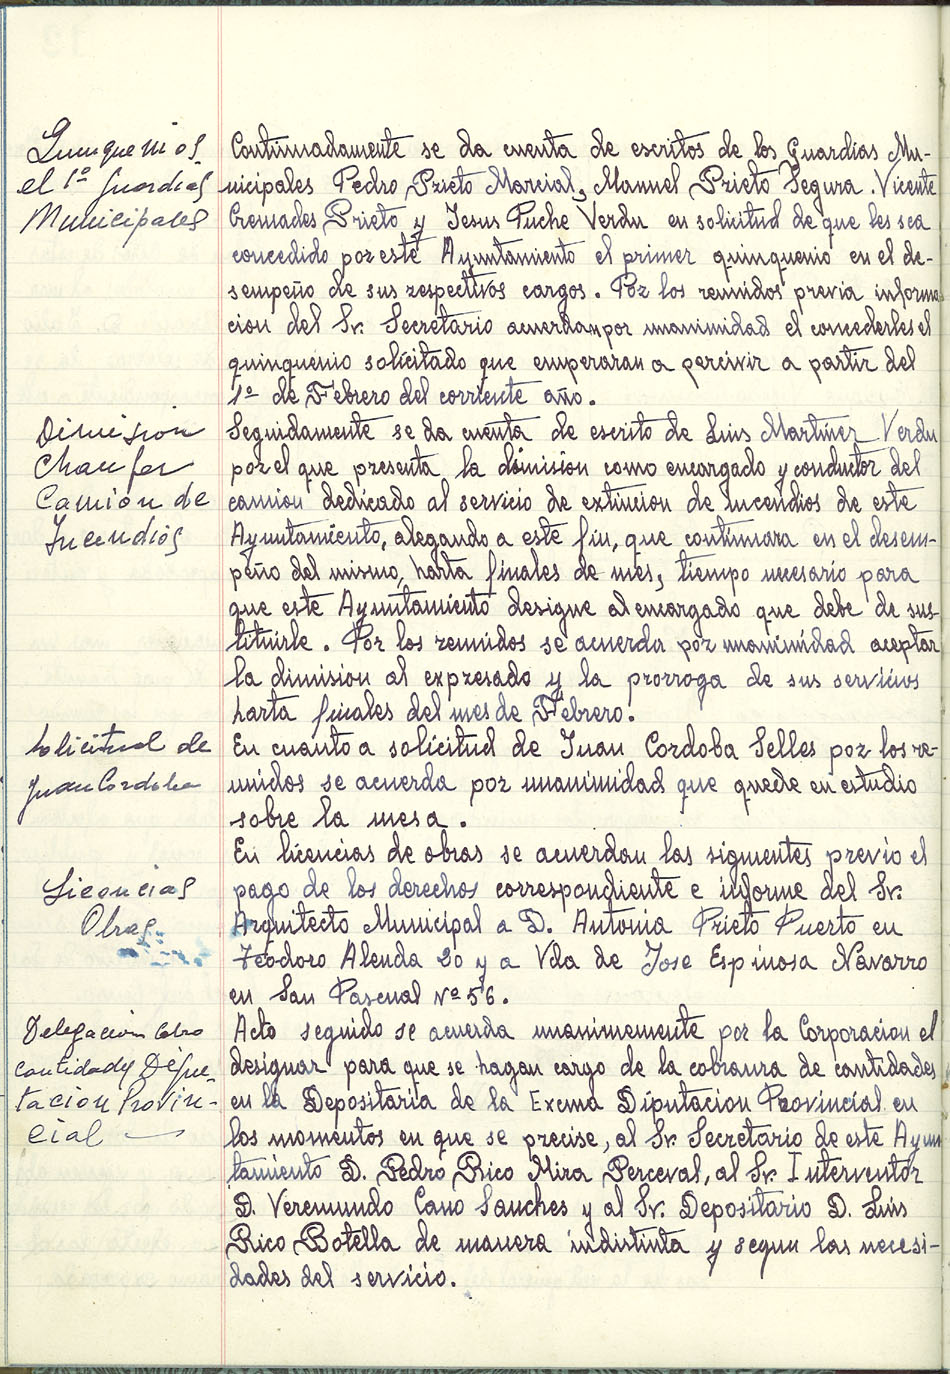 Quinquenios
el 1º Guardias
Municipales
Continuadamente se da cuenta de escritos de los Guardias Mu-
nicipales Pedro Prieto Marcial, Manuel Prieto Segura. Vicente
Cremades Prieto y Jesus Puche Verdu en solicitud de que les sea
concedido por este Ayuntamiento el primer quinquenio en el de-
sempeño de sus respectivos cargos. Por los reunidos previa informa
cion del Sr. Secretario acuerdan por unanimidad el concederles el
quinquenio solicitado que emperaran a percivir a partir del
1º de Febrero del corriente año.
Dimision
Chaufer
Camión de
Incendios
Seguidamente se da cuenta de escrito de Luis Martinez Verdu
por el que presenta la dimision como encargado y conductor del
camion dedicado al servicio de extincion de incendios de este
Ayuntamiento, alegando a este fin, que continuara en el desem-
peño del mismo, harta finales de mes, tiempo necesario para
que este Ayuntamiento designe al encargado que debe de sus-
tituirle. Por los reunidos se acuerda por unanimidad aceptar
la dimision al expresado y la prorroga de sus servicios
harta finales del mes de Febrero.
Solicitud de
Juan Cordoba
En cuanto a solicitud de Juan Cordoba Selles por los re-
unidos se acuerda por unanimidad que quede en estudio
sobre la mesa.
Licencias
Obras.
En licencias de obras se acuerdan las siguientes previo el
pago de los derechos correspondiente e informe del Sr.
Arquitecto Municipal a D. Antonia Prieto Puerto en
Teodoro Alenda 20 y a Vda de Jose Espinosa Navarro
en San Pascual Nº 56.
Delegacion Cobro
cantidades Dipu-
tacion Provin-
cial
Acto seguido se acuerda unanimemente por la Corporacion el
designar para que se hagan cargo de la cobranza de cantidades
en la Depositaria de la Excma Diputacion Provincial en
los momentos en que se precise, al Sr. Secretario de este Ayun
tamiento D. Pedro Rico Mira Perceval, al Sr. Interventor
D. Veremundo Cano Sanches y al Sr. Depositario D. Luis
Rico Botella de manera indistinta y segun las necesi-
dades del servicio.